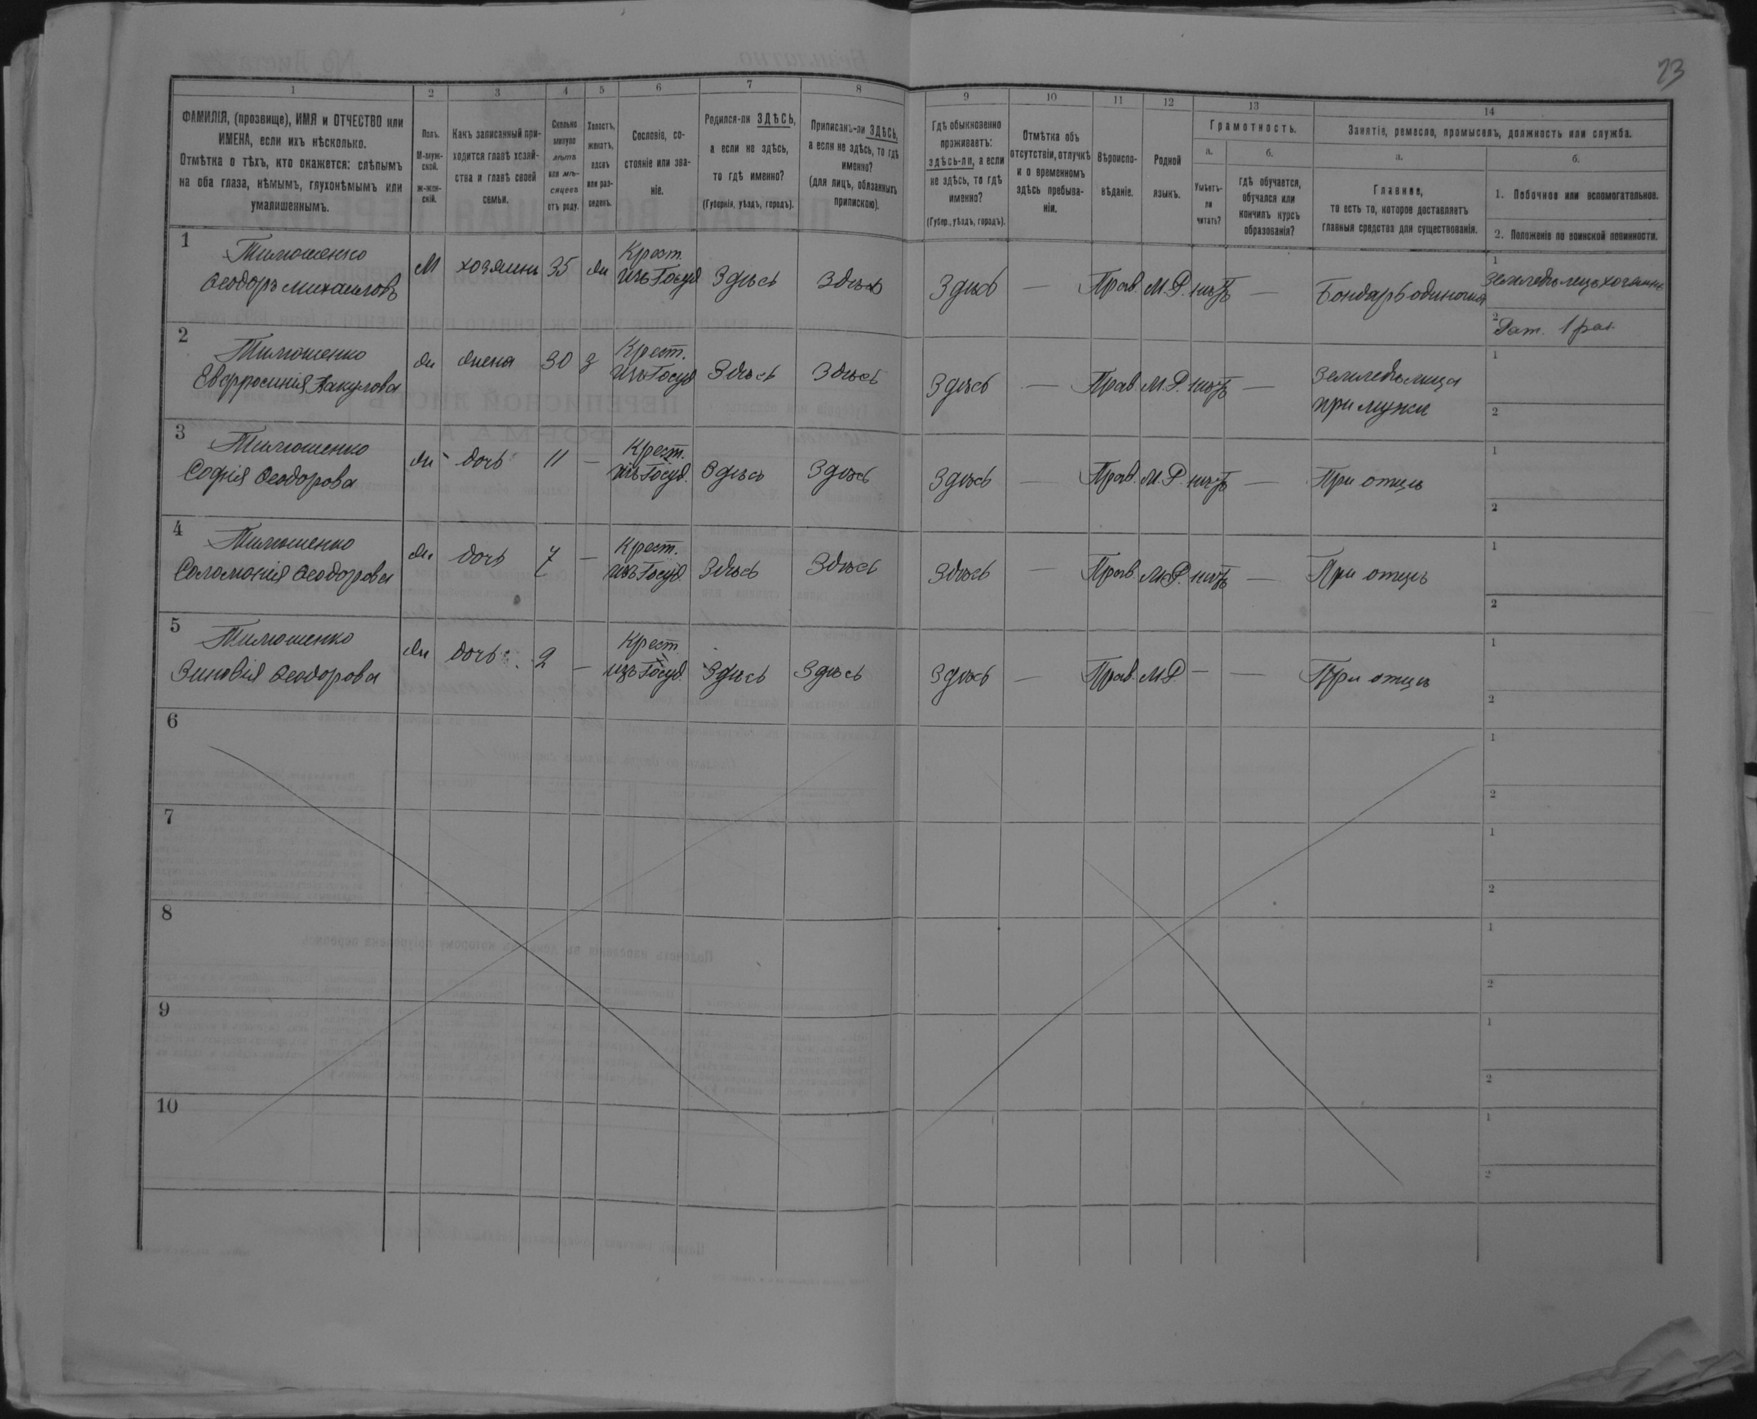 23
1 2 3 4 5 6 7 8 9 10 11 12 13 14
ФАМИЛІЯ, (прозвище), ИМЯ и ОТЧЕСТВО или
ИМЕНА, если ихъ нѣсколько.
Отмѣтка о тѣхъ, кто окажется: слѣпымъ
на оба глаза, нѣмымъ, глухонѣмымъ или
умалишеннымъ.
Полъ.
М-муж-
ской.
ж-жен-
скій.
Какъ записанный при-
ходится главѣ хозяй-
ства и главѣ своей
семьи.
Сколько
минуло
лѣтъ
или мѣ-
сяцевъ
отъ роду.
Холостъ,
женатъ,
вдовъ
или раз-
веденъ.
Сословіе, со-
стояніе или зва-
ніе.
Родился-ли ЗДѢСЬ,
а если не здѣсь,
то гдѣ именно?
(Губернія, уѣздъ, городъ).
Приписанъ-ли ЗДѢСЬ,
а если не здѣсь, то гдѣ
именно?
(для лицъ, обязанныхъ
припискою).
Гдѣ обыкновенно
проживаетъ:
здѣсь-ли, а если
не здѣсь, то гдѣ
именно?
(Губер., уѣздъ, городъ).
Отмѣтка объ
отсутствіи, отлучкѣ
и о временномъ
здѣсь пребыва-
ніи.
Вѣроиспо-
вѣданіе.
Родной
языкъ.
Грамотность.
а.
Умѣетъ-
ли
читать?
б.
гдѣ обучается,
обучался или
кончилъ курсъ
образованія?
Занятіе, ремесло, промыселъ, должность или служба.
а.
Главное,
то есть то, которое доставляетъ
главныя средства для существованія.
б.
1. Побочное или вспомогательное.
2. Положеніе по воинской повинности.
1 Тимошенко
Ѳеодоръ Михаиловъ
М хозяинъ 35 ж Крест. изъ Госуд. Здѣсь Здѣсь Здѣсь — Прав. М.Р. нѣтъ — Бондарь одиночка
1 Земледѣлецъ хозяинъ
2 Рат. 1 раз.
2 Тимошенко
Евфросинія Вакулова
ж жена 30 з Крест. изъ Госуд Здѣсь Здѣсь Здѣсь — Прав М.Р. нѣтъ — Земледѣлица
при мужѣ
1
2
3 Тимошенко
Софія Ѳеодорова
ж дочь 11 — Крест. изъ Госуд. Здѣсь Здѣсь Здѣсь — Прав. М.Р. нѣтъ — При отцѣ
1
2
4 Тимошенко
Соломонія Ѳеодорова
ж дочь 7 — Крест. изъ Госуд Здѣсь Здѣсь Здѣсь — Прав М.Р. нѣтъ — При отцѣ
1
2
5 Тимошенко
Зиновія Ѳеодорова
ж дочь 2 — Крест изъ Госуд Здѣсь Здѣсь Здѣсь — Прав. М.Р — — При отцѣ
1
2
6
1
2
7
1
2
8
1
2
9
1
2
10
1
2